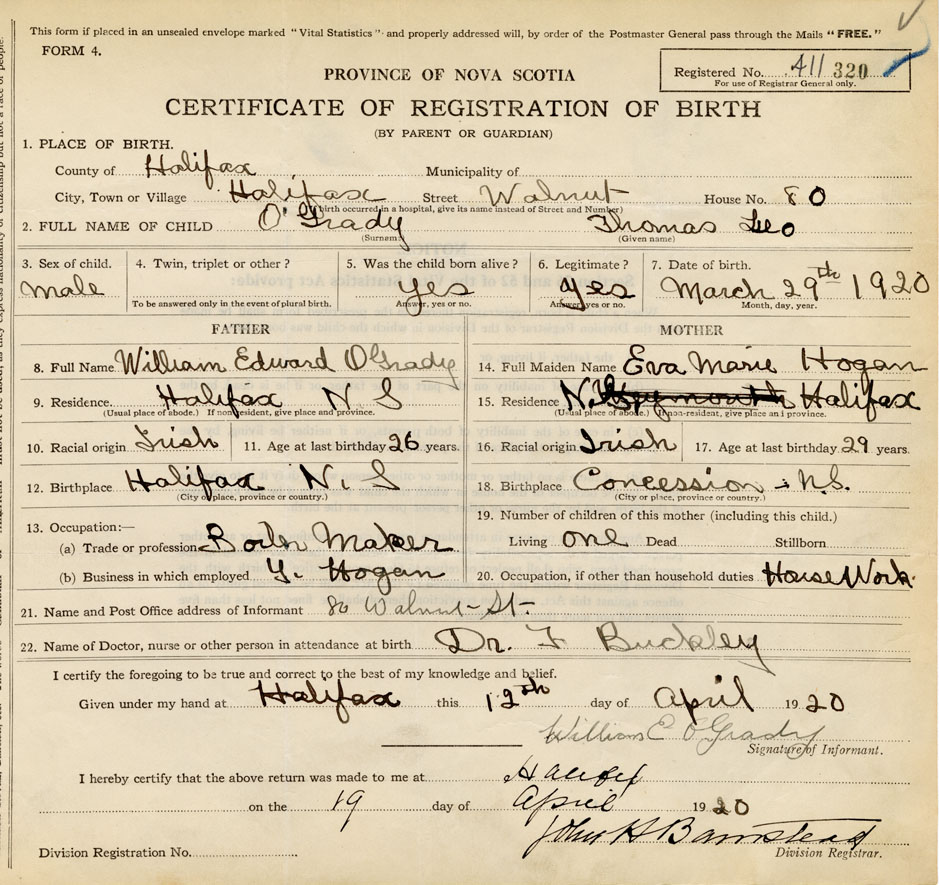 This form if placed in an unsealed envelope marked "Vital Statistics" and properly addressed will, by order of the Postmaster General pass through the Mails "FREE."
FORM 4.
Registered No. 411 320
For use of Registrar General only.
PROVINCE OF NOVA SCOTIA
CERTIFICATE OF REGISTRATION OF BIRTH
(BY PARENT OR GUARDIAN)
1. PLACE OF BIRTH.
County of Halifax Municipality of
City, Town or Village Halifax Street Walnut House No. 80
(If birth occurred in a hospital, give its name instead of Street and Number)
2. FULL NAME OF CHILD O'Grady Thomas Leo
(Surname) (Given name)
3. Sex of child. 4. Twin, triplet or other? 5. Was the child born alive? 6. Legitimate? 7. Date of birth.
Male Yes yes March 29th 1920
To be answered only in the event of plural birth. Answer, yes or no. Answer, yes or no. Month, day, year.
FATHER
8. Full Name William Edward O'Grady
9. Residence Halifax N S
(Usual place of abode.) If non-resident, give place and province.
10. Racial origin Irish 11. Age at last birthday 26 years.
12. Birthplace Halifax N. S
(City or place, province or country.)
13. Occupation:—
(a) Trade or profession Boiler Maker
(b) Business in which employed Y. Hogan
MOTHER
14. Full Maiden Name Eva Marie Hogan
15. Residence Halifax
(Usual place of abode.) If non-resident, give place and province.
16. Racial origin Irish 17. Age at last birthday 29 years.
18. Birthplace Concession - N.S.
(City or place, province or country.)
19. Number of children of this mother (including this child.)
Living one Dead Stillborn
20. Occupation, if other than household duties House Work
21. Name and Post Office address of Informant 80 Walnut St.
22. Name of Doctor, nurse or other person in attendance at birth Dr. F Buckley
I certify the foregoing to be true and correct to the best of my knowledge and belief.
Given under my hand at Halifax this 12th day of April 1920
William E O'Grady
Signature of Informant.
I hereby certify that the above return was made to me at Halifax
on the 19 day of April 1920
John H Barnstead
Division Registration No. Division Registrar.